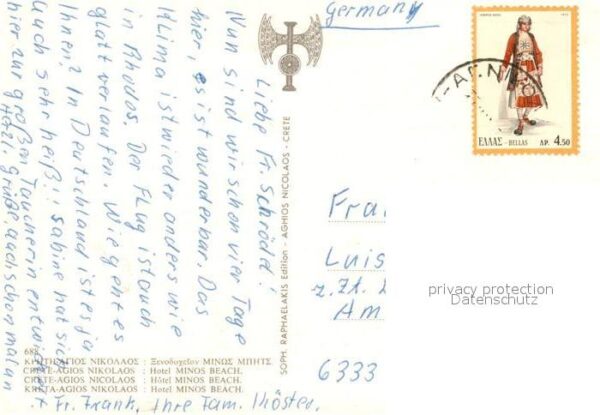 Germany
ΕΛΛΑΣ - HELLAS ΔΡ. 4.50
Liebe Fr. Schrödl!
Nun sind wir schon vier Tage
hier, es ist wunderbar. Das
Klima ist wieder anders wie
in Rhodos. Der Flug ist auch
glatt verlaufen. Wie geht es
Ihnen? In Deutschland ist es ja
auch sehr heiß!! Sabine hat sich
hier zur großen Taucherin entwickelt.
Herzl. Grüße, auch schon mal an
Fr. Frank, Ihre Fam. Köster
SOPH. RAPHAELAKIS Edition - AGHIOS NICOLAOS - CRETE
Fra.
Luis
z.Zt.
Am
6333
privacy protection
Datenschutz
ΚΡΗΤΗ-ΑΓΙΟΣ ΝΙΚΟΛΑΟΣ : Ξενοδοχεῖον ΜΙΝΩΣ ΜΠΗΤΣ.
CRETE-AGIOS NIKOLAOS : Hotel MINOS BEACH.
CRETE-AGIOS NICOLAOS : Hôtel MINOS BEACH.
KRETA-AGIOS NIKOLAOS : Hotel MINOS BEACH.